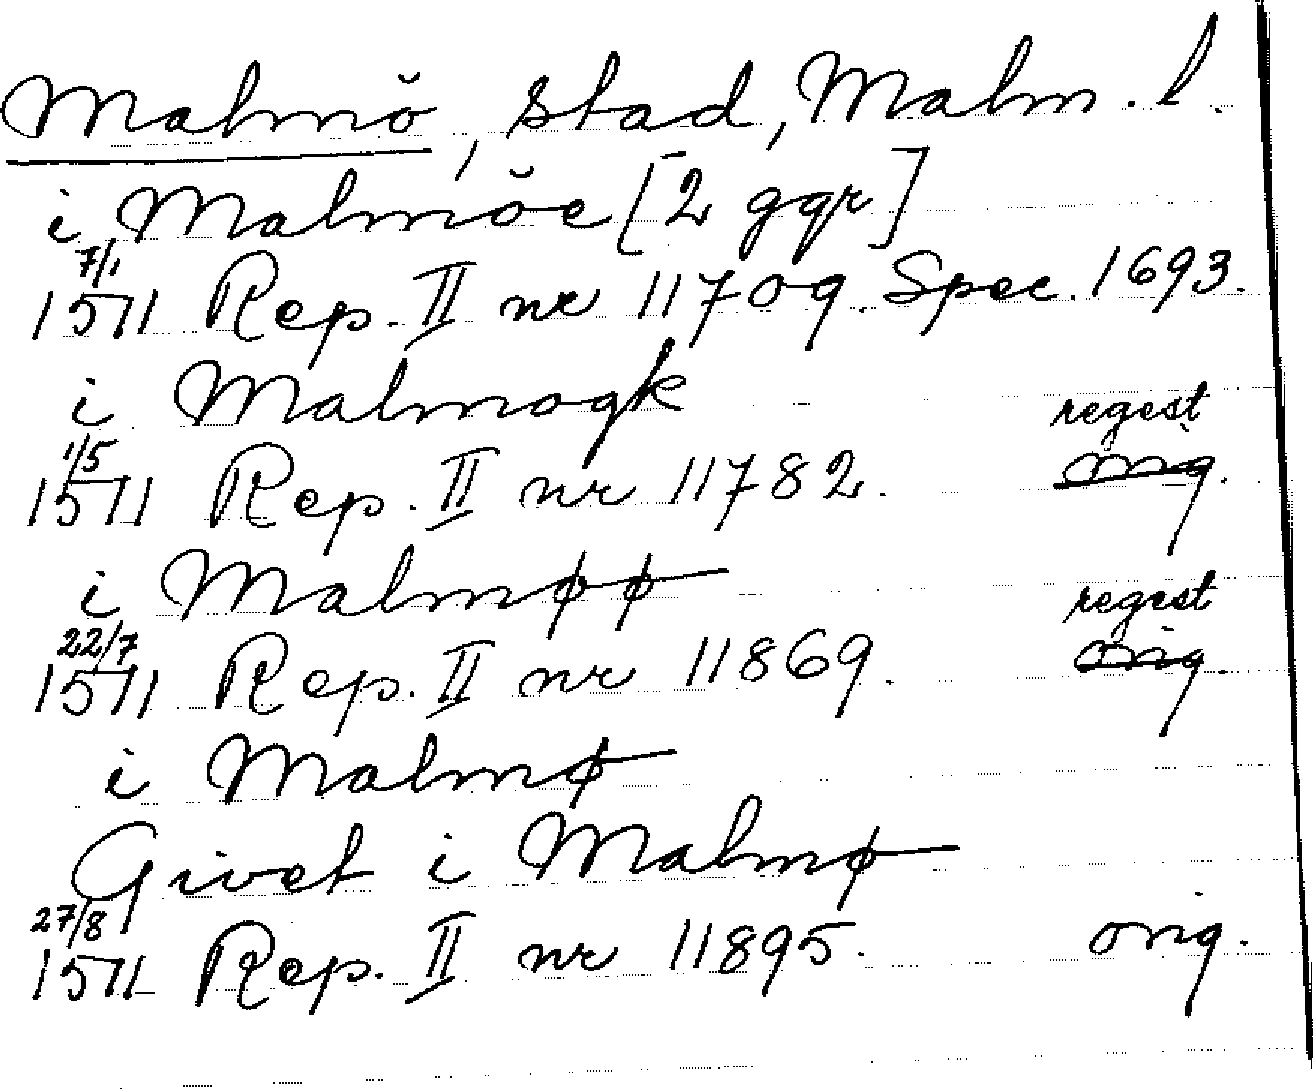 Malmö, stad, Malm. l.
i Malmöe [2 ggr]
7/1
1511 Rep. II nr 11709 Spec. 1693.
i Malmogk regest
1/5
1511 Rep. II nr 11782. orig.
i Malmøø regest
22/7
1511 Rep. II nr 11869. orig.
i Malmø
Givet i Malmø
27/8
1511 Rep. II nr 11895. orig.